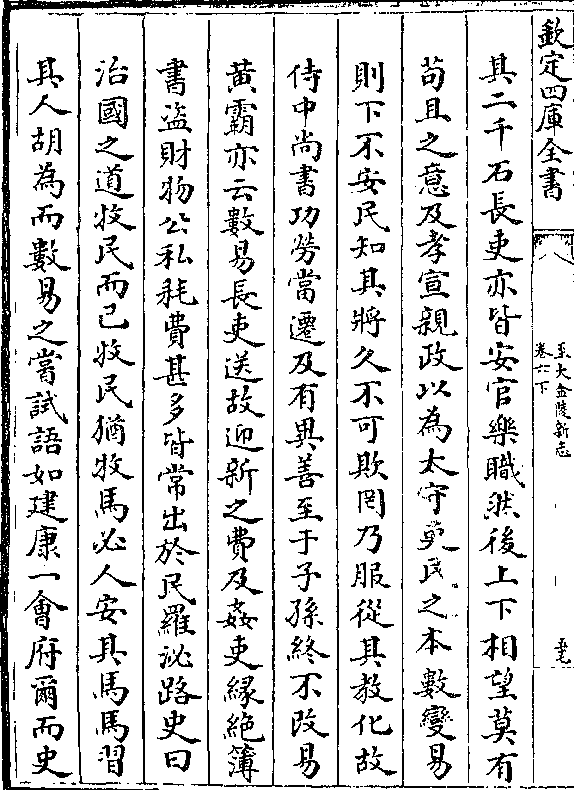 欽定四庫全書
至大金陵新志
卷六下
其二千石長吏亦皆安官樂職然後上下相望莫有
苟且之意及孝宣親政以為太守吏民之本數變易
則下不安民知其將久不可欺罔乃服從其教化故
侍中尚書功勞當遷及有異善至于子孫終不改易
黄霸亦云數易長吏送故迎新之費及姦吏縁絶簿
書盗財物公私耗費甚多皆常出於民羅泌路史曰
治國之道牧民而已牧民猶牧馬必人安其馬馬習
其人胡為而數易之嘗試語如建康一會府爾而史